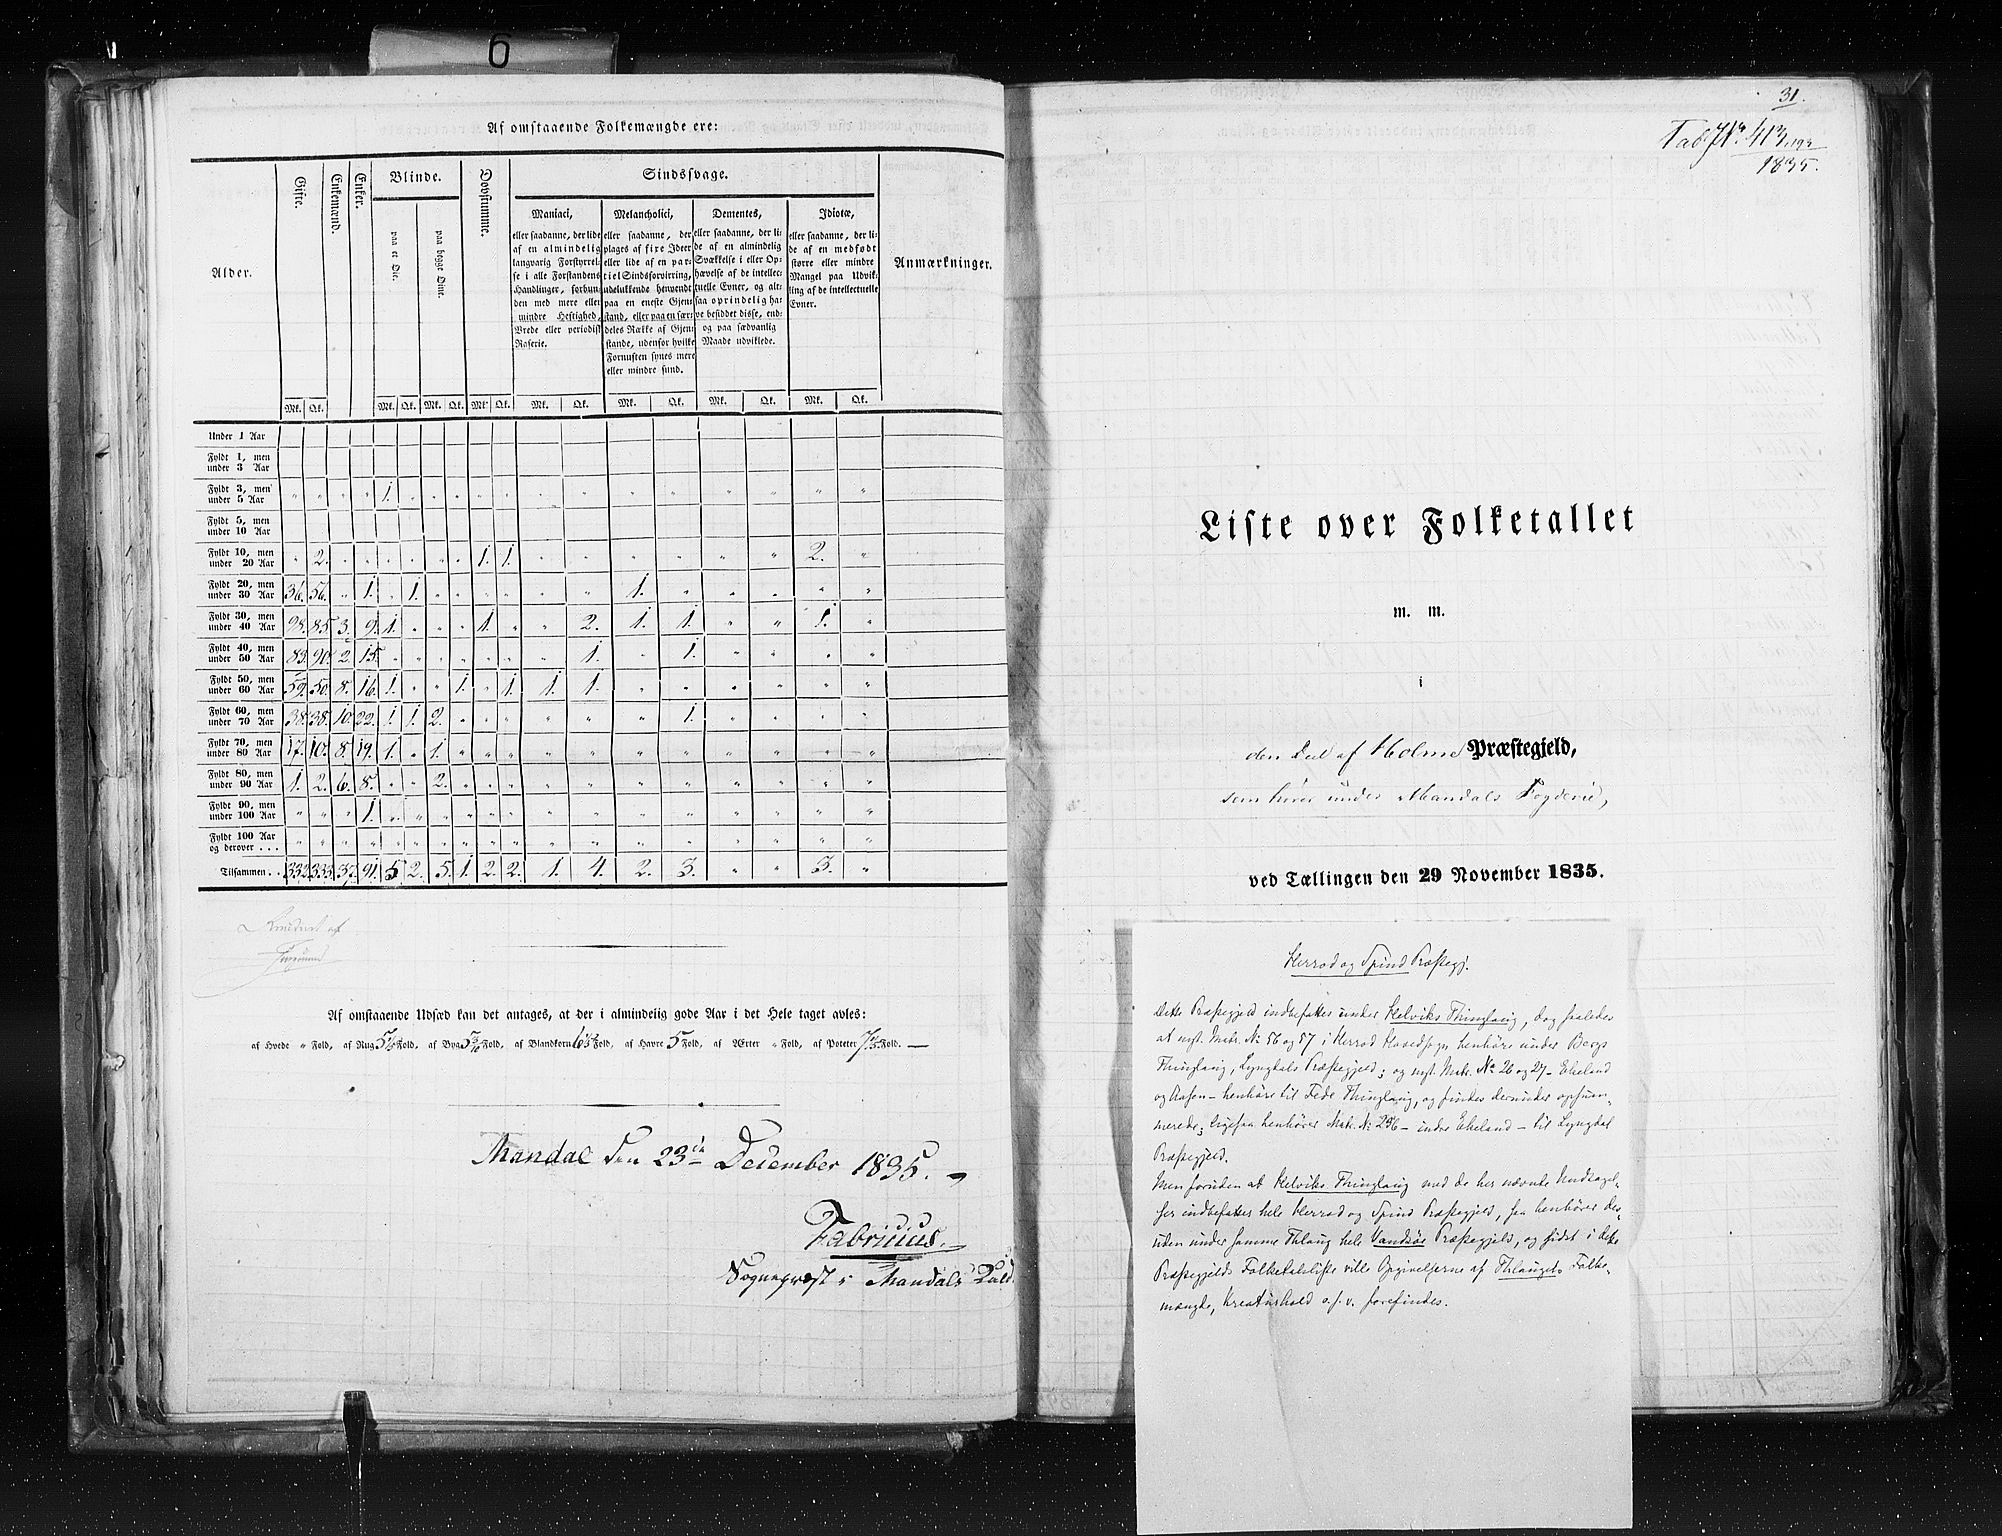 6
Af omstaaende Folkemængde ere:
Alder.
Gifte.
Enkemænd.
Enker.
Blinde.
paa et Øie.
paa begge Øine.
Døvstumme.
Sindssvage.
Maniaci,
eller saadanne, der lide
af en almindelig
langvarig Forstyrrel-
se i alle Forstandens
Handlinger, forbun-
den med mere eller
mindre Heftighed,
Vrede eller periodisk
Raserie.
Melancholici,
eller saadanne, der
plages af fixe Ideer
eller lide af en par-
tiel Sindsforvirring,
udelukkende henvendt
paa en eneste Gjen-
stand, eller paa en sær-
deles Række af Gjen-
stande, udenfor hvilke
Fornuften synes mere
eller mindre sund.
Dementes,
eller saadanne, der li-
de af en almindelig
Svækkelse i eller Op-
hævelse af de intellec-
tuelle Evner, og alt-
saa oprindelig ha-
ve besiddet disse, end-
og paa sædvanlig
Maade udviklede.
Idiotæ,
eller saadanne, der li-
de af en medfødt
større eller mindre
Mangel paa Udvik-
ling af de intellectuelle
Evner.
Anmærkninger.
Mk. Qk. Mk. Qk. Mk. Qk. Mk. Qk. Mk. Qk. Mk. Qk. Mk. Qk. Mk. Qk.
Under 1 Aar
Fyldt 1, men
under 3 Aar
Fyldt 3, men
under 5 Aar " " " " 1. " " " " " " " " " " " " "
Fyldt 5, men
under 10 Aar
Fyldt 10, men
under 20 Aar " 2. " " " " " " 1. 1. " " " " " " 2. "
Fyldt 20, men
under 30 Aar 36. 56. " 1. " 1. " " " " " " 1. " " " " "
Fyldt 30, men
under 40 Aar 98. 85. 3. 9. 1. " " " 1. " " 2. 1. 1. " " 1. "
Fyldt 40, men
under 50 Aar 83. 90. 2. 15. " " " " " " " 1. " 1. " " " "
Fyldt 50, men
under 60 Aar 59. 50. 8. 16. 1. " " 1. " 1. 1. 1. " " " " " "
Fyldt 60, men
under 70 Aar 38. 38. 10. 22. 1. 1. 2. " " " " " " 1. " " " "
Fyldt 70, men
under 80 Aar 17. 10. 8. 19. 1. " 1. " " " " " " " " " " "
Fyldt 80, men
under 90 Aar 1. 2. 6. 8. " " 2. " " " " " " " " " " "
Fyldt 90, men
under 100 Aar " " " 1. " " " " " " " " " " " " " "
Fyldt 100 Aar
og derover . . . " " " " " " " " " " " " " " " " " "
Tilsammen . . 332. 333. 37. 91. 5. 2. 5. 1. 2. 2. 1. 4. 2. 3. " " 3. "
Af omstaaende Udsæd kan det antages, at der i almindelig gode Aar i det Hele taget avles:
af Hvede " Fold, af Rug Fold, af Byg Fold, af Blandkorn Fold, af Havre 5 Fold, af Ærter " Fold, af Poteter Fold.
Mandal den 23de December 1835.
Fabricius.
Sognepræst i Mandals
31.
1835.
Liste over Folketallet
m. m.
i
den Deel af Holme Præstegjeld,
som hører under Mandals Fogderie,
ved Tællingen den 29 November 1835.
Herrod og Spind Præstegj.
Dette Præstegjeld indbefattes under Helviks Thinglaug, dog saaledes
at nyt. Matr. No 56 og 57 i Herrod Hovedsogn henhøre under Bergs
Thinglaug, Lyngdals Præstegjeld; og nyt. Matr. No 26 og 27 - Ekeland
og Aasen - henhøre til Fede Thinglaug, og findes derunder opsum-
merede; ligesaa henhører Matr. No 256 - indre Ekeland - til Lyngdal
Præstegjeld.
Men foruden at Helviks Thinglaug med de her nævnte Undtagel-
ser indbefatter hele Herrod og Spind Præstegjeld, saa henhører des-
uden under samme Thlaug hele Vandsøe Præstegjeld, og sidst i dette
Præstegjelds Folketalsliste ville Opgivelserne af Thlaugets Folke-
mængde, Kreaturhold o.s.v. forefindes.